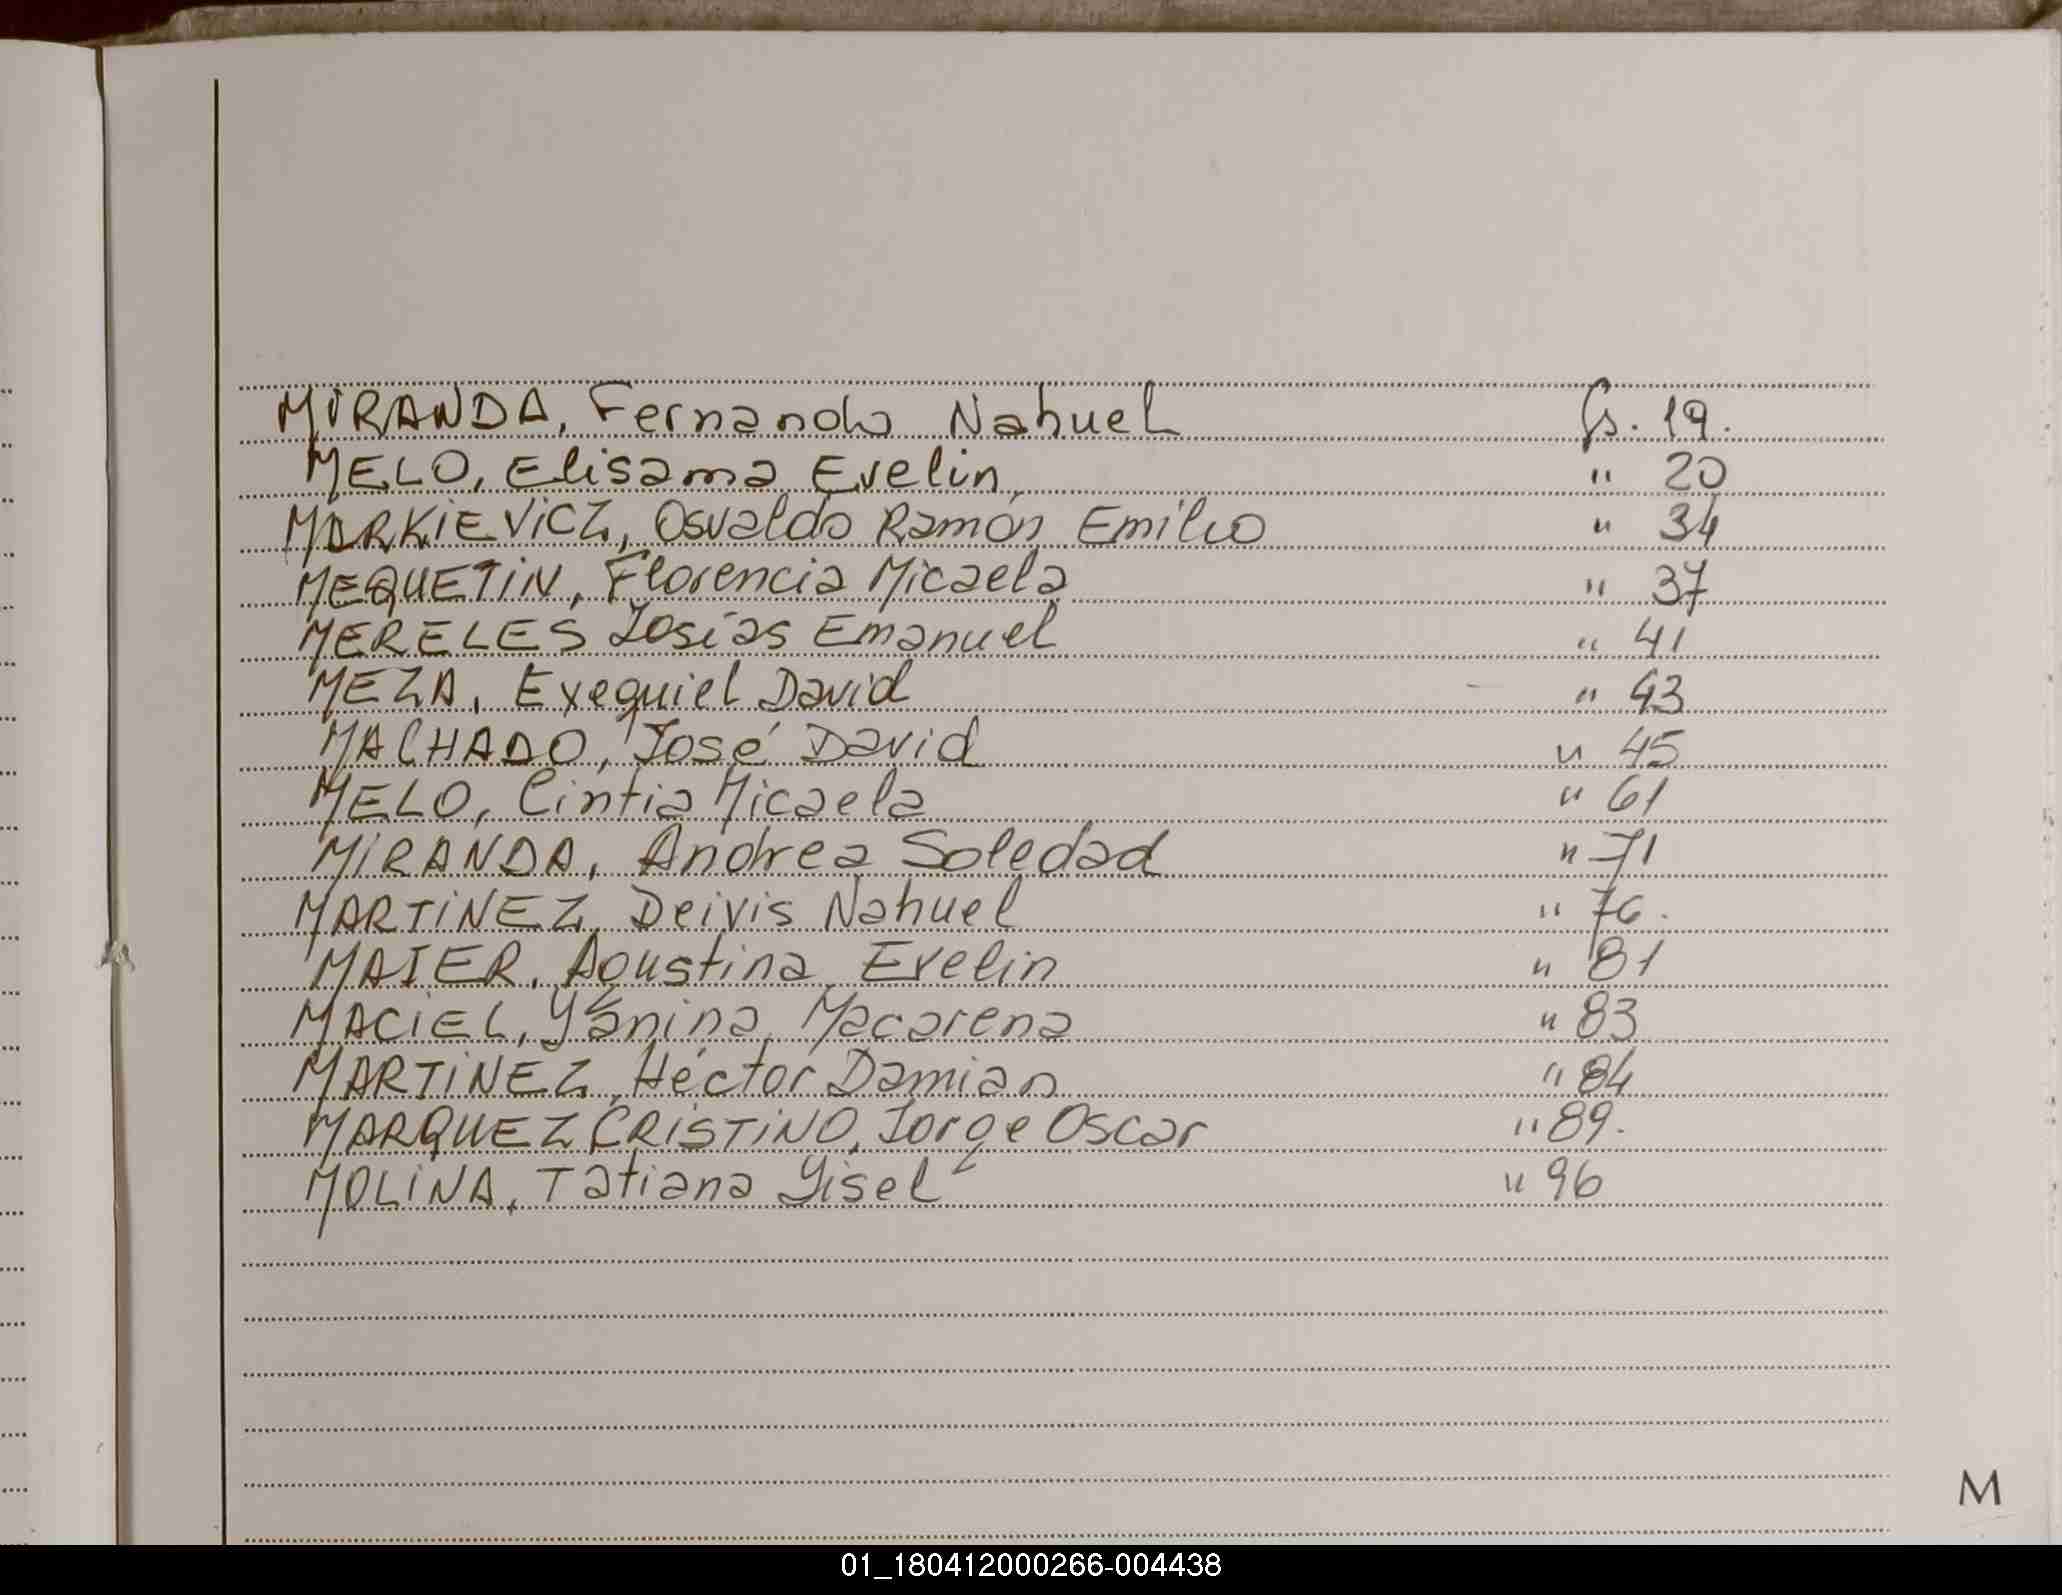 MIRANDA, Fernando Nahuel fs. 19.
MELO, Elisama Evelin " 20
MARKIEVICZ, Osvaldo Ramón Emilio " 34
MEQUETIN, Florencia Micaela " 37
MERELES Josías Emanuel " 41
MEZA, Exequiel David " 43
MACHADO, José David " 45
MELO, Cintia Micaela " 61
MIRANDA, Andrea Soledad " 71
MARTINEZ, Deivis Nahuel " 76.
MAIER, Agustina Evelin " 81
MACIEL, Yanina Macarena " 83
MARTINEZ, Héctor Damian " 84
MARQUEZ CRISTINO, Jorge Oscar " 89.
MOLINA, Tatiana Yisel " 96
M
01_180412000266-004438